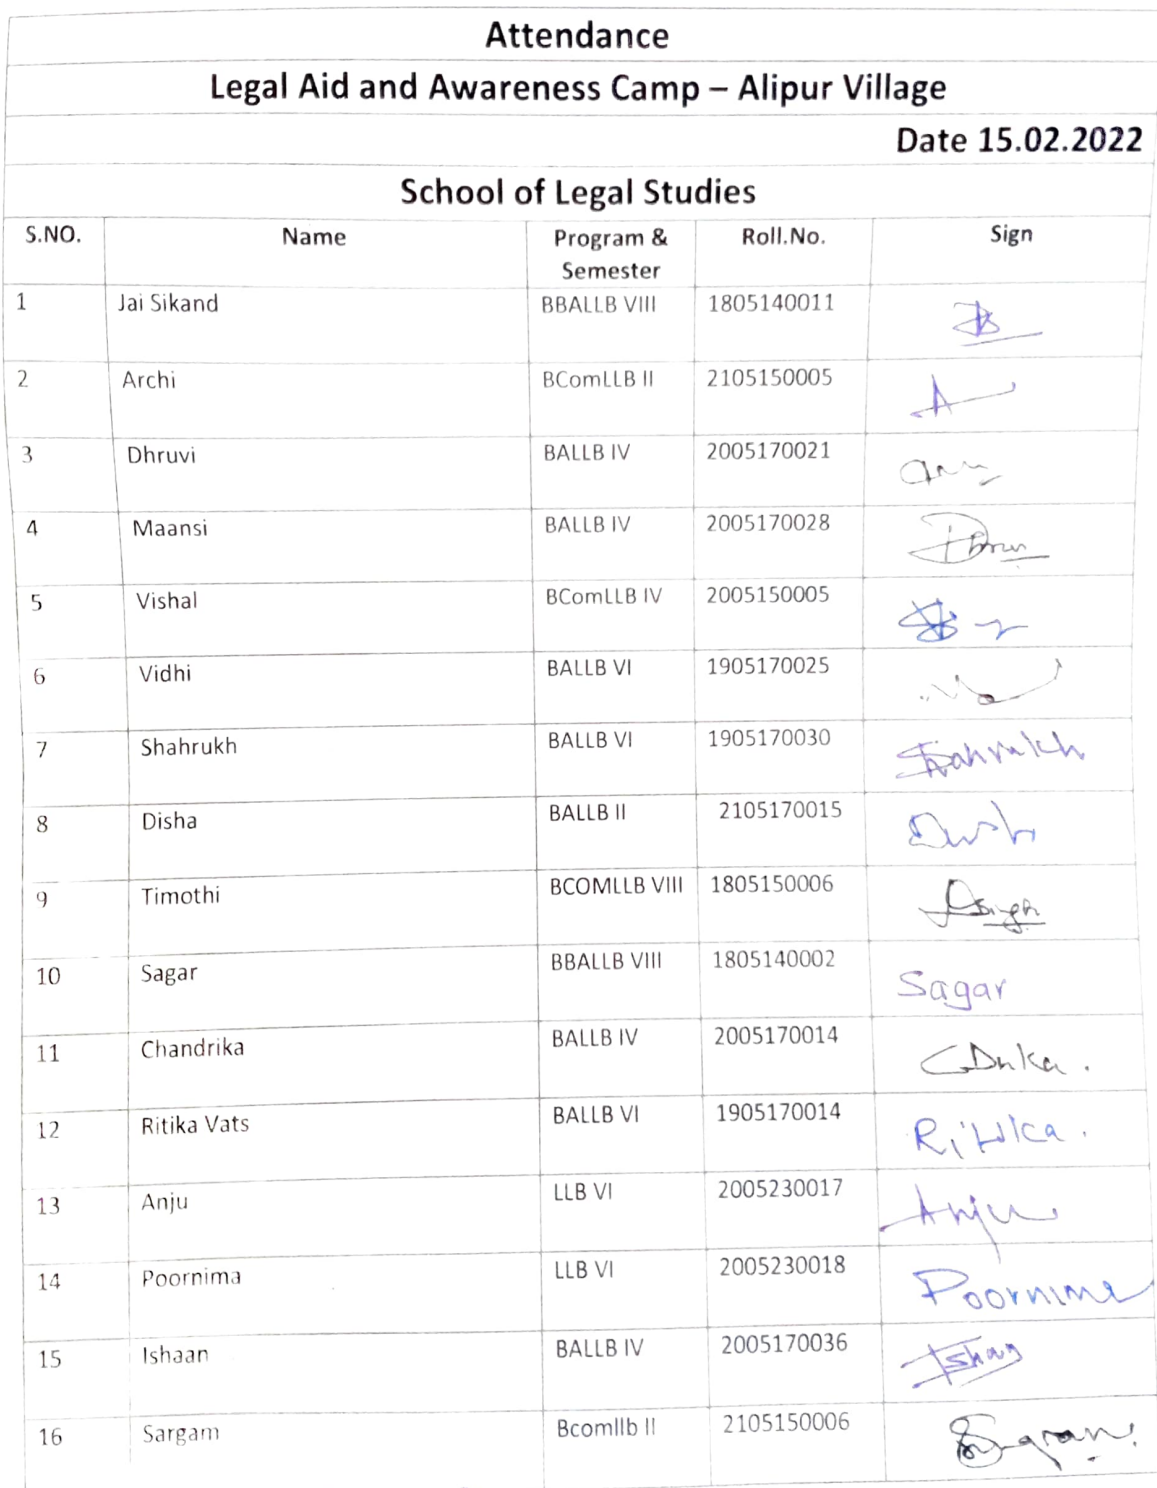 Attendance
Legal Aid and Awareness Camp – Alipur Village
Date 15.02.2022
School of Legal Studies
S.NO. Name Program & Semester Roll.No. Sign
1 Jai Sikand BBALLB VIII 1805140011
2 Archi BComLLB II 2105150005 A
3 Dhruvi BALLB IV 2005170021
4 Maansi BALLB IV 2005170028
5 Vishal BComLLB IV 2005150005
6 Vidhi BALLB VI 1905170025
7 Shahrukh BALLB VI 1905170030 Shahrukh
8 Disha BALLB II 2105170015
9 Timothi BCOMLLB VIII 1805150006
10 Sagar BBALLB VIII 1805140002 Sagar
11 Chandrika BALLB IV 2005170014
12 Ritika Vats BALLB VI 1905170014 Ritika.
13 Anju LLB VI 2005230017 Anju
14 Poornima LLB VI 2005230018 Poornima
15 Ishaan BALLB IV 2005170036 Ishan
16 Sargam Bcomllb II 2105150006